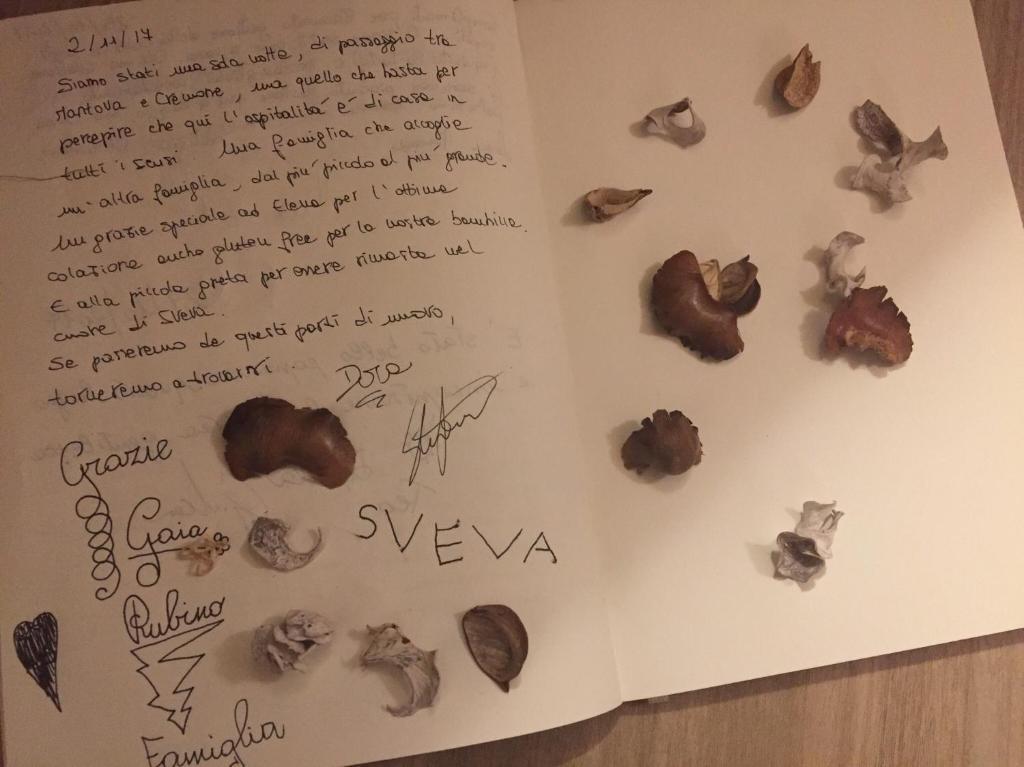 2/11/17
Siamo stati una sola volta, di passaggio tra
Mantova e Cremone, ma quello che basta per
percepire che qui l'ospitalità è di casa in
tutti i sensi. Una famiglia che accoglie
un'altra famiglia, dal più piccolo al più grande.
Un grazie speciale ad Elena per l'ottima
colazione anche gluten free per la nostra bambina.
E alla piccola greta per essere rimasta nel
cuore di Sveva.
Se passeremo da questi posti di nuovo,
torneremo a trovarvi.
Dora
Stefano
Grazie
Gaia
SVEVA
Rubino
Famiglia